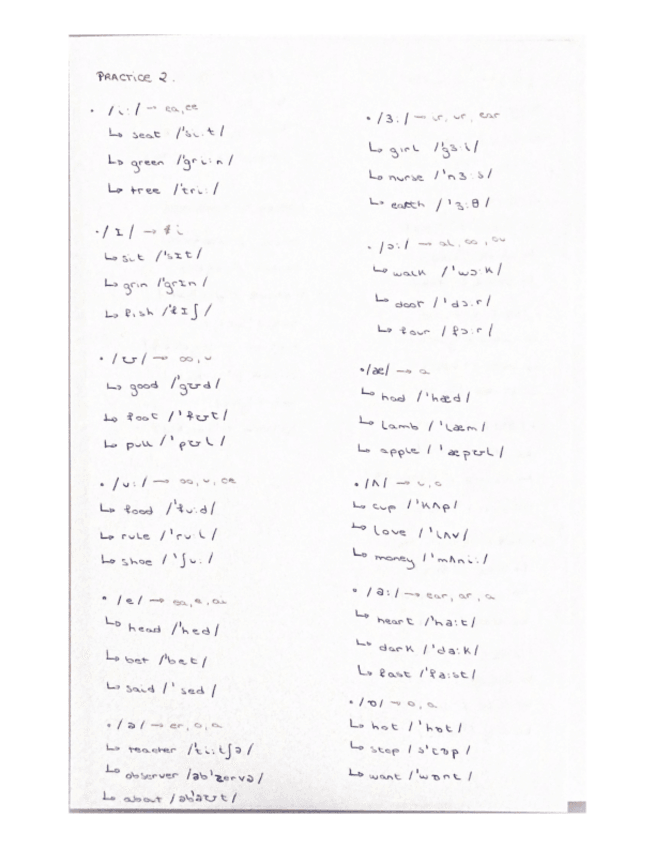 PRACTICE 2.
· /i:/ → ea, ee
↳ seat /'si:t/
↳ green /'gri:n/
↳ tree /'tri:/
· /ɪ/ → i
↳ sit /'sɪt/
↳ grin /'grɪn/
↳ fish /'fɪʃ/
· /ʊ/ → oo, u
↳ good /'gʊd/
↳ foot /'fʊt/
↳ pull /'pʊl/
· /u:/ → oo, u, oe
↳ food /'fu:d/
↳ rule /'ru:l/
↳ shoe /'ʃu:/
· /e/ → ea, e, ai
↳ head /'hed/
↳ bet /'bet/
↳ said /'sed/
· /ə/ → er, o, a
↳ teacher /'ti:tʃə/
↳ observer /əb'zɜrvə/
↳ about /əb'aʊt/
· /ɜ:/ → ir, ur, ear
↳ girl /'gɜ:l/
↳ nurse /'nɜ:s/
↳ earth /'ɜ:θ/
· /ɔ:/ → al, oo, ou
↳ walk /'wɔ:k/
↳ door /'dɔ:r/
↳ four /fɔ:r/
· /æ/ → a
↳ had /'hæd/
↳ lamb /'læm/
↳ apple /'æpʊl/
· /ʌ/ → u, o
↳ cup /'kʌp/
↳ love /'lʌv/
↳ money /'mʌni:/
· /a:/ → ear, ar, a
↳ heart /'ha:t/
↳ dark /'da:k/
↳ fast /'fa:st/
· /ɒ/ → o, a
↳ hot /'hɒt/
↳ stop /s'tɒp/
↳ want /'wɒnt/